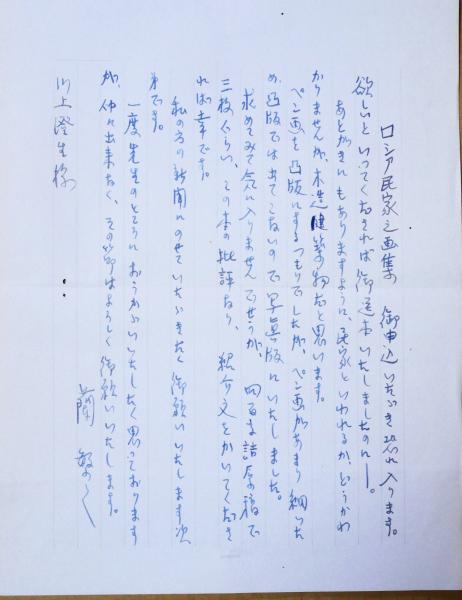 ロシア民家之画集 御申込いたゞき恐れ入ります。
欲しいといってくだされば御送本いたしましたのに——。
あとがきにもありますように、民家といわれるか、どうかわ
かりませんが、木造建築物だと思います。
ペン画を凸版にするつもりでしたが、ペン画があまり細いた
め、凸版では出てこないので写真版にいたしました。
求めてみて気に入りませんでせうが、四百字詰原稿で
三枚くらい、その本の批評なり、紹介文をかいてくださ
れば幸です。
私の方の新聞にのせていたゞきたく御願いいたします次
第です。
一度先生のところにおうかゞいいたしたく思っております
が、仲々出来なく、その節はよろしく御願いいたします。
蘭 繁之
川上澄生様